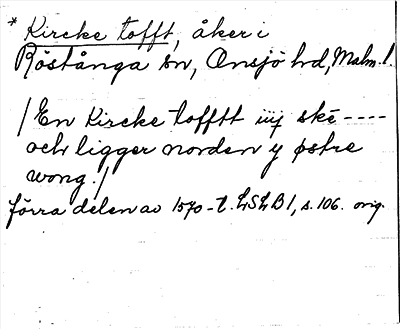 * Kircke tofft, åker i
Röstånga sn, Onsjö hd, Malm. l.
/En Kircke tofftt iiij ske----
och ligger norden y østre
wong./
förra delen av 1570-t. LSLB 1, s. 106. orig.